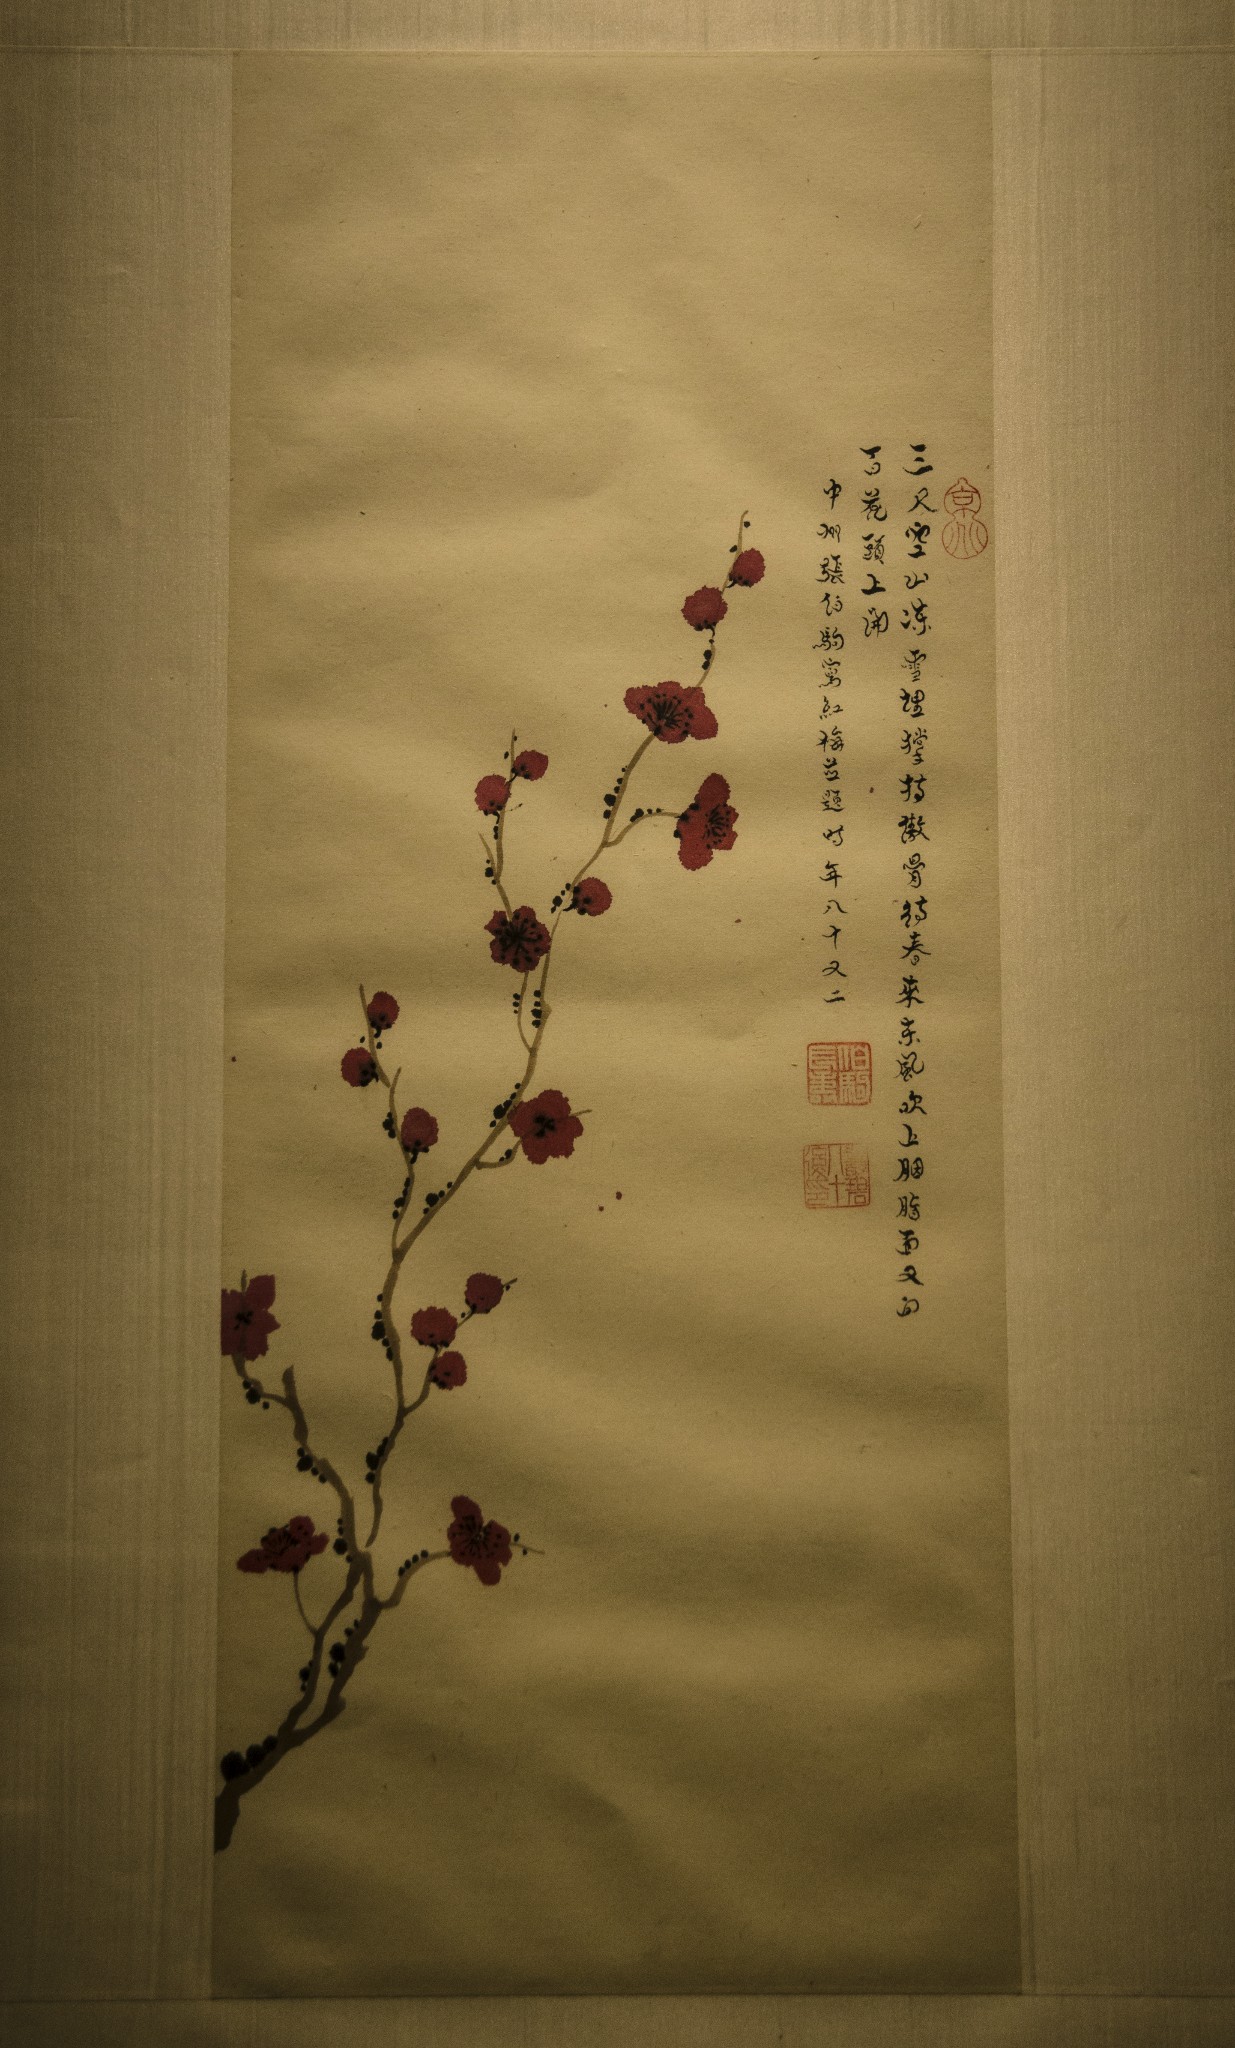 三尺雪山凍雪埋撑持傲骨待春来東風吹上胭脂面又向
百花頭上開
中州張伯駒寫紅梅并題時年八十又二
京兆
伯駒長壽